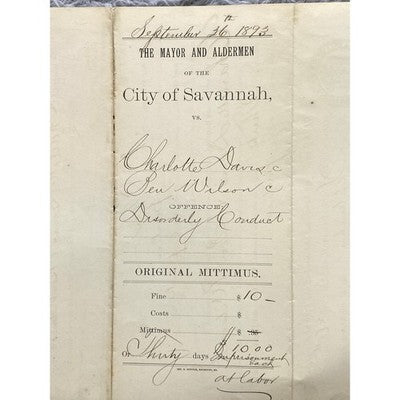 September 26th 1893
THE MAYOR AND ALDERMEN
OF THE
City of Savannah,
VS.
Charlotte Davis c
Ben Wilson c
OFFENCE:
Disorderly Conduct
ORIGINAL MITTIMUS.
Fine $ 10 —
Costs $
Mittimus $
$10.00
Or Thirty days Imprisonment
each
at labor